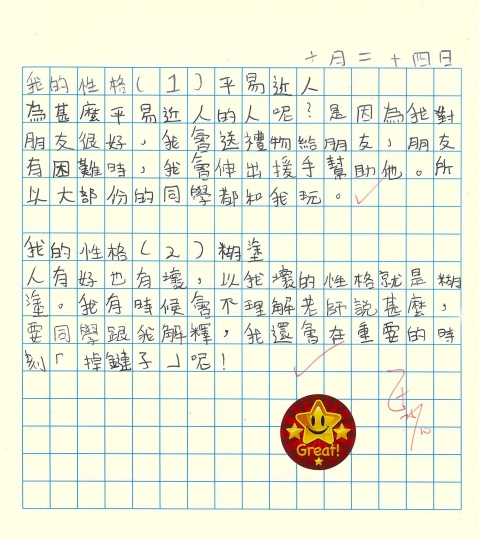 十月二十四日
我的性格(1)平易近人
為甚麼平易近人的人呢?是因為我對
朋友很好，我會送禮物給朋友，朋友
有困難時，我會伸出援手幫助他。所
以大部份的同學都和我玩。
我的性格(2)糊塗
人有好也有壞，以我壞的性格就是糊
塗。我有時候會不理解老師説甚麼，
要同學跟我解釋，我還會在重要的時
刻「掉鏈子」呢!
Great!